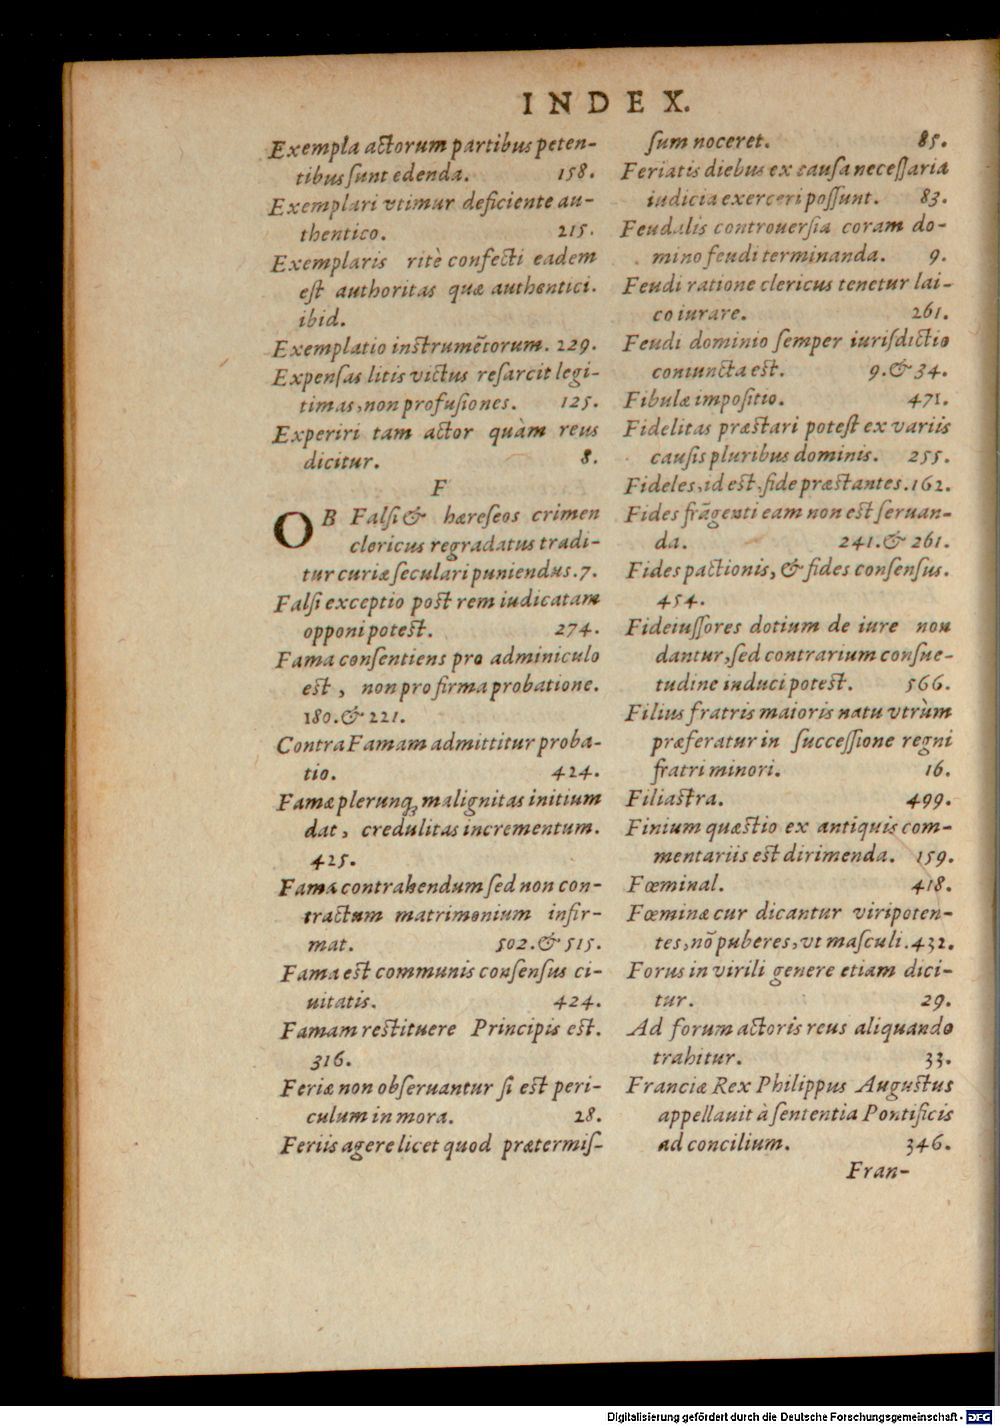 INDEX.
Exempla actorum partibus peten-
tibus sunt edenda. 158.
Exemplari vtimur deficiente au-
thentico. 215.
Exemplaris ritè confecti eadem
est authoritas quæ authentici.
ibid.
Exemplatio instrumẽtorum. 229.
Expensas litis victus resarcit legi-
timas, non profusiones. 125.
Experiri tam actor quàm reus
dicitur. 8.
F
OB Falsi & hæreseos crimen
clericus regradatus tradi-
tur curiæ seculari puniendus. 7.
Falsi exceptio post rem iudicatam
opponi potest. 274.
Fama consentiens pro adminiculo
est, non pro firma probatione.
180. & 221.
Contra Famam admittitur proba-
tio. 424.
Famæ plerunq; malignitas initium
dat, credulitas incrementum.
425.
Fama contrahendum sed non con-
tractum matrimonium infir-
mat. 502. & 515.
Fama est communis consensus ci-
uitatis. 424.
Famam restituere Principis est.
316.
Feriæ non obseruantur si est peri-
culum in mora. 28.
Feriis agere licet quod prætermis-
sum noceret. 85.
Feriatis diebus ex causa necessaria
iudicia exerceri possunt. 83.
Feudalis controuersia coram do-
mino feudi terminanda. 9.
Feudi ratione clericus tenetur lai-
co iurare. 261.
Feudi dominio semper iurisdictio
coniuncta est. 9. & 34.
Fibulæ impositio. 471.
Fidelitas præstari potest ex variis
causis pluribus dominis. 255.
Fideles, id est, fide præstantes. 162.
Fides frãgenti eam non est seruan-
da. 241. & 261.
Fides pactionis, & fides consensus.
454.
Fideiussores dotium de iure non
dantur, sed contrarium consue-
tudine induci potest. 566.
Filius fratris maioris natu vtrùm
præferatur in successione regni
fratri minori. 16.
Filiastra. 499.
Finium quæstio ex antiquis com-
mentariis est dirimenda. 159.
Fœminal. 418.
Fœminæ cur dicantur viripoten-
tes, nõ puberes, vt masculi. 432.
Forus in virili genere etiam dici-
tur. 29.
Ad forum actoris reus aliquando
trahitur. 33.
Franciæ Rex Philippus Augustus
appellauit à sententia Pontificis
ad concilium. 346.
Fran-
Digitalisierung gefördert durch die Deutsche Forschungsgemeinschaft - DFG